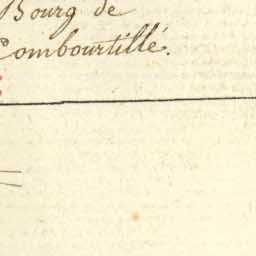 Bourg de
Combourtillé.